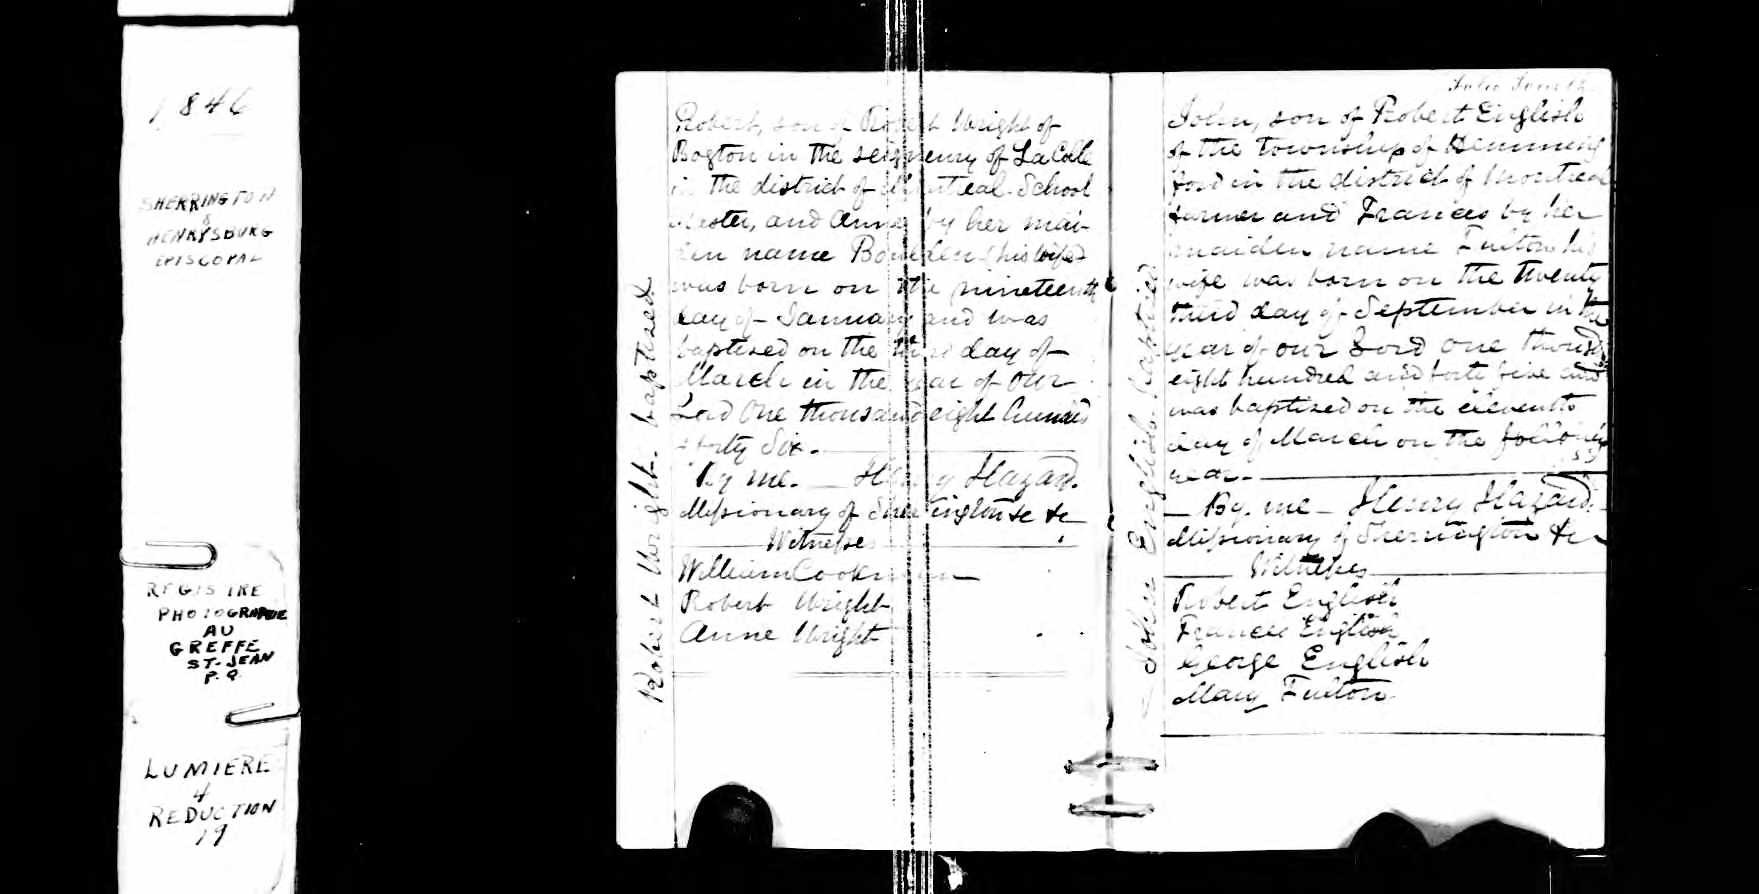 1846
SHERRINGTON
&
HENRYSBURG
EPISCOPAL
REGISTRE
PHOTOGRAPHIE
AU
GREFFE
ST-JEAN
P.Q.
LUMIERE
4
REDUCTION
19
Robert Wright. baptized
Robert, son of Robert Wright of
Bogton in the seigneury of LaColle
in the district of Montreal School
Master, and Anne by her mai-
den name Bowden (his wife)
was born on the nineteenth
day of January and was
baptized on the third day of
March in the year of our
Lord One thousand eight hundred
& forty Six.
By me. Henry Hazard.
Missionary of Sherrington &c &c
Witnesses
William Cookman
Robert Wright
Anne Wright
John English. baptized
Folio
John, son of Robert English
of the township of Hemming
ford in the district of Montreal
farmer and Frances by her
maiden name Fulton his
wife was born on the twenty
third day of September in the
year of our Lord one thousand
eight hundred and forty five and
was baptized on the eleventh
day of March on the following
year.
By. me - Henry Hazard.
Missionary of Sherrington &c
Witnesses
Robert English
Frances English
George English
Mary Fulton